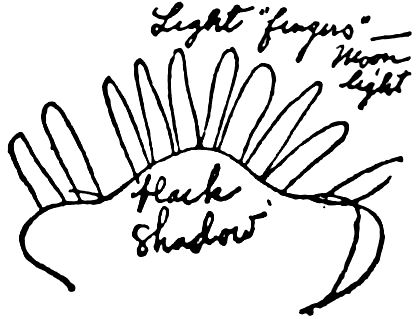 Light "fingers" —
Moon
light
Black
Shadow